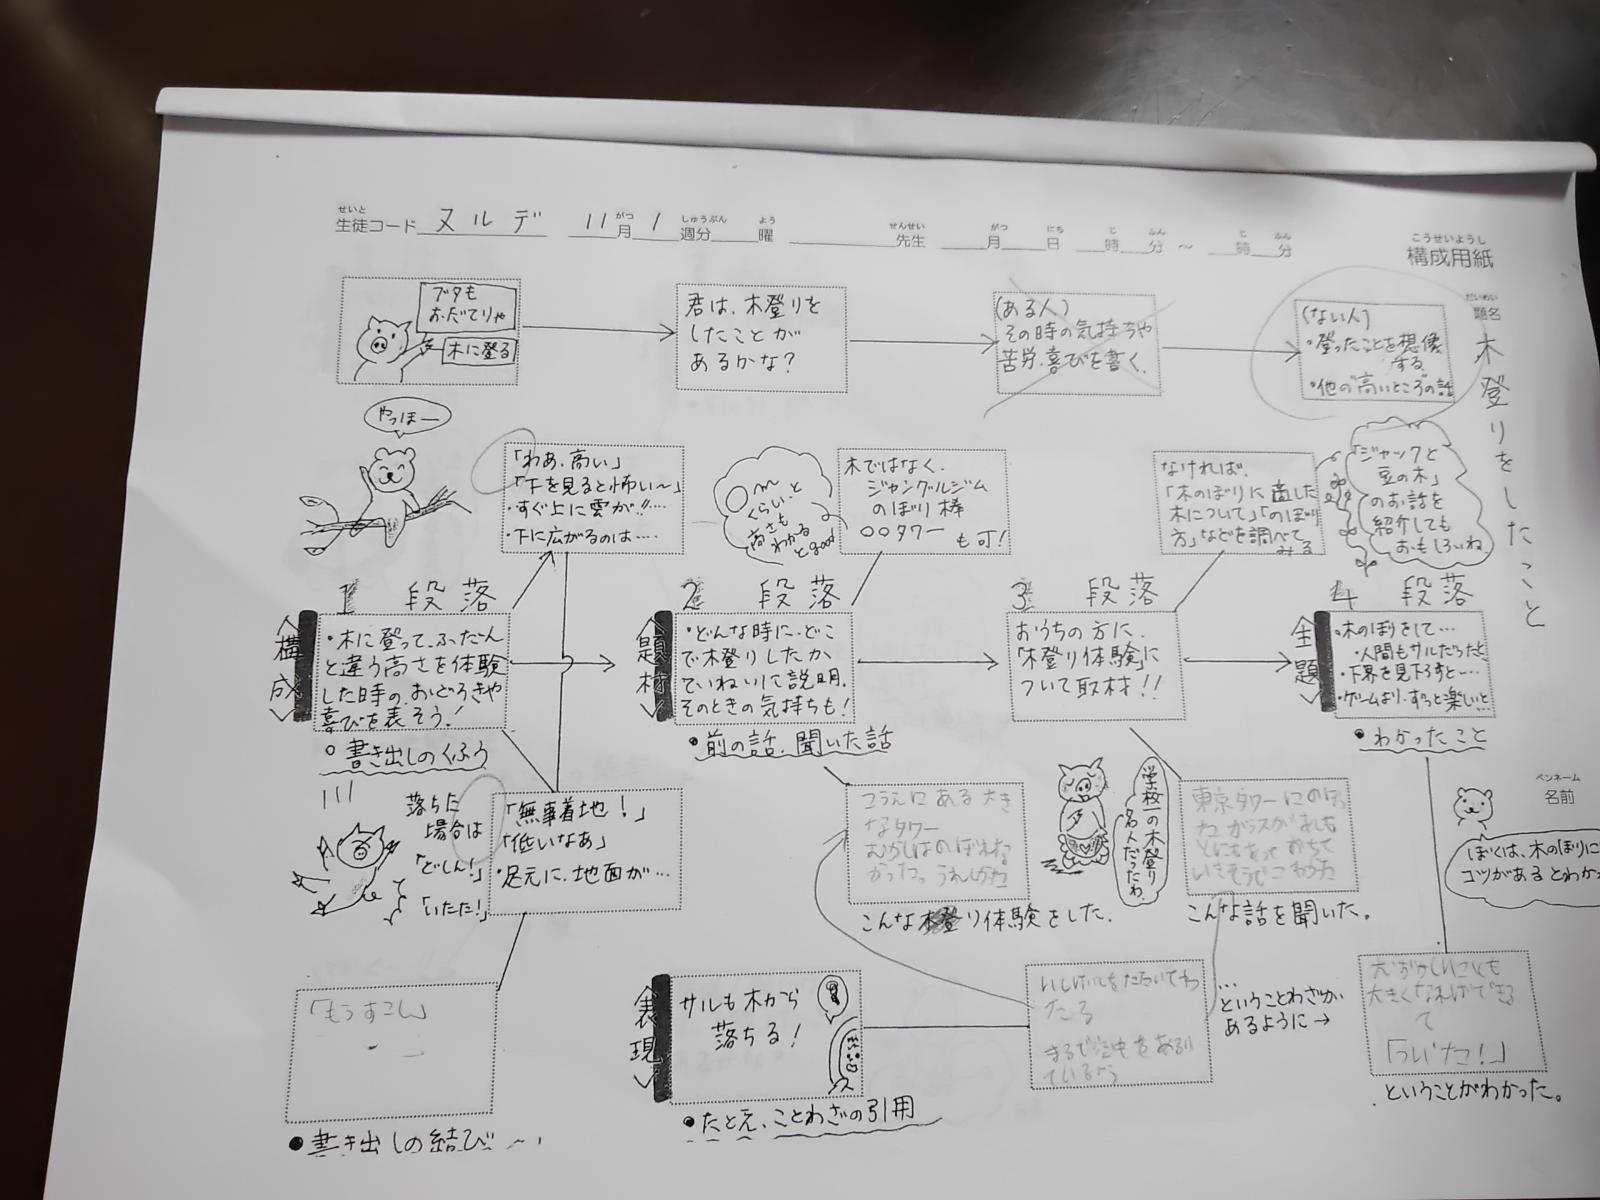 生徒コード ヌルデ 11月1週分 曜 先生 月 日 時 分 ~ 時 分
構成用紙
題名 木登りをしたこと
ブタも
おだてりゃ
木に登る
君は、木登りを
したことが
あるかな?
(ある人)
その時の気持ちや
苦労、喜びを書く、
(ない人)
・登ったことを想像
する
・他の高いところの話
やっほー
「わあ、高い」
「下を見ると怖い~」
・すぐ上に雲が!!…
・下に広がるのは……
○m
くらい、と
高さも
わかる
とgood
木ではなく、
ジャングルジム
のぼり棒
○○タワー
も可!
なければ、
「木のぼりに適した
木について」「のぼり
方」などを調べて
みる
「ジャックと
豆の木」
のお話を
紹介しても
おもしろいね。
1 段落
構成
・木に登って、ふだん
と違う高さを体験
した時の、おどろきや
喜びを表そう!
○書き出しのくふう
2 段落
題材
・どんな時に、どこ
で木登りしたか、
ていねいに説明。
そのときの気持ちも!
●前の話、聞いた話
3 段落
おうちの方に、
「木登り体験」に
ついて取材!!
4 段落
主題
・木のぼりをして…
・人間もサルだったと
・下界を見下ろすと…
・ゲームより、ずっと楽しいと
●わかったこと
落ちた
場合は
「どしん!」
「いたた!」
「無事着地!」
「低いなあ」
・足元に、地面が…
大き
なタワー
こんな木登り体験をした。
学校一の木登り
名人だったわ。
東京タワーにのぼっ
た
こんな話を聞いた。
ペンネーム
名前
ぼくは、木のぼりに
コツがあるとわか
「もうすこし」
●書き出しの結び
表現
サルも木から
落ちる!
●たとえ、ことわざの引用
いしばしをたたいてわ
たる
まるで空中をある
…
ということわざが
あるように→
むずかしいことも
大きくなればできる
て
「ついた!」
ということがわかった。